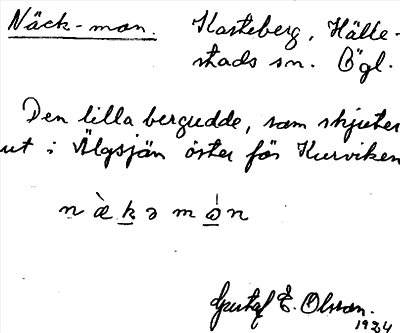 Näck-mon. Kasteberg, Hälle-
stads sn. Ögl.
Den lilla bergudde, som skjuter
ut i Älgsjön öster för Kurviken
n ὰ k ə m ə́ n
Gustaf E. Olsson.
1924